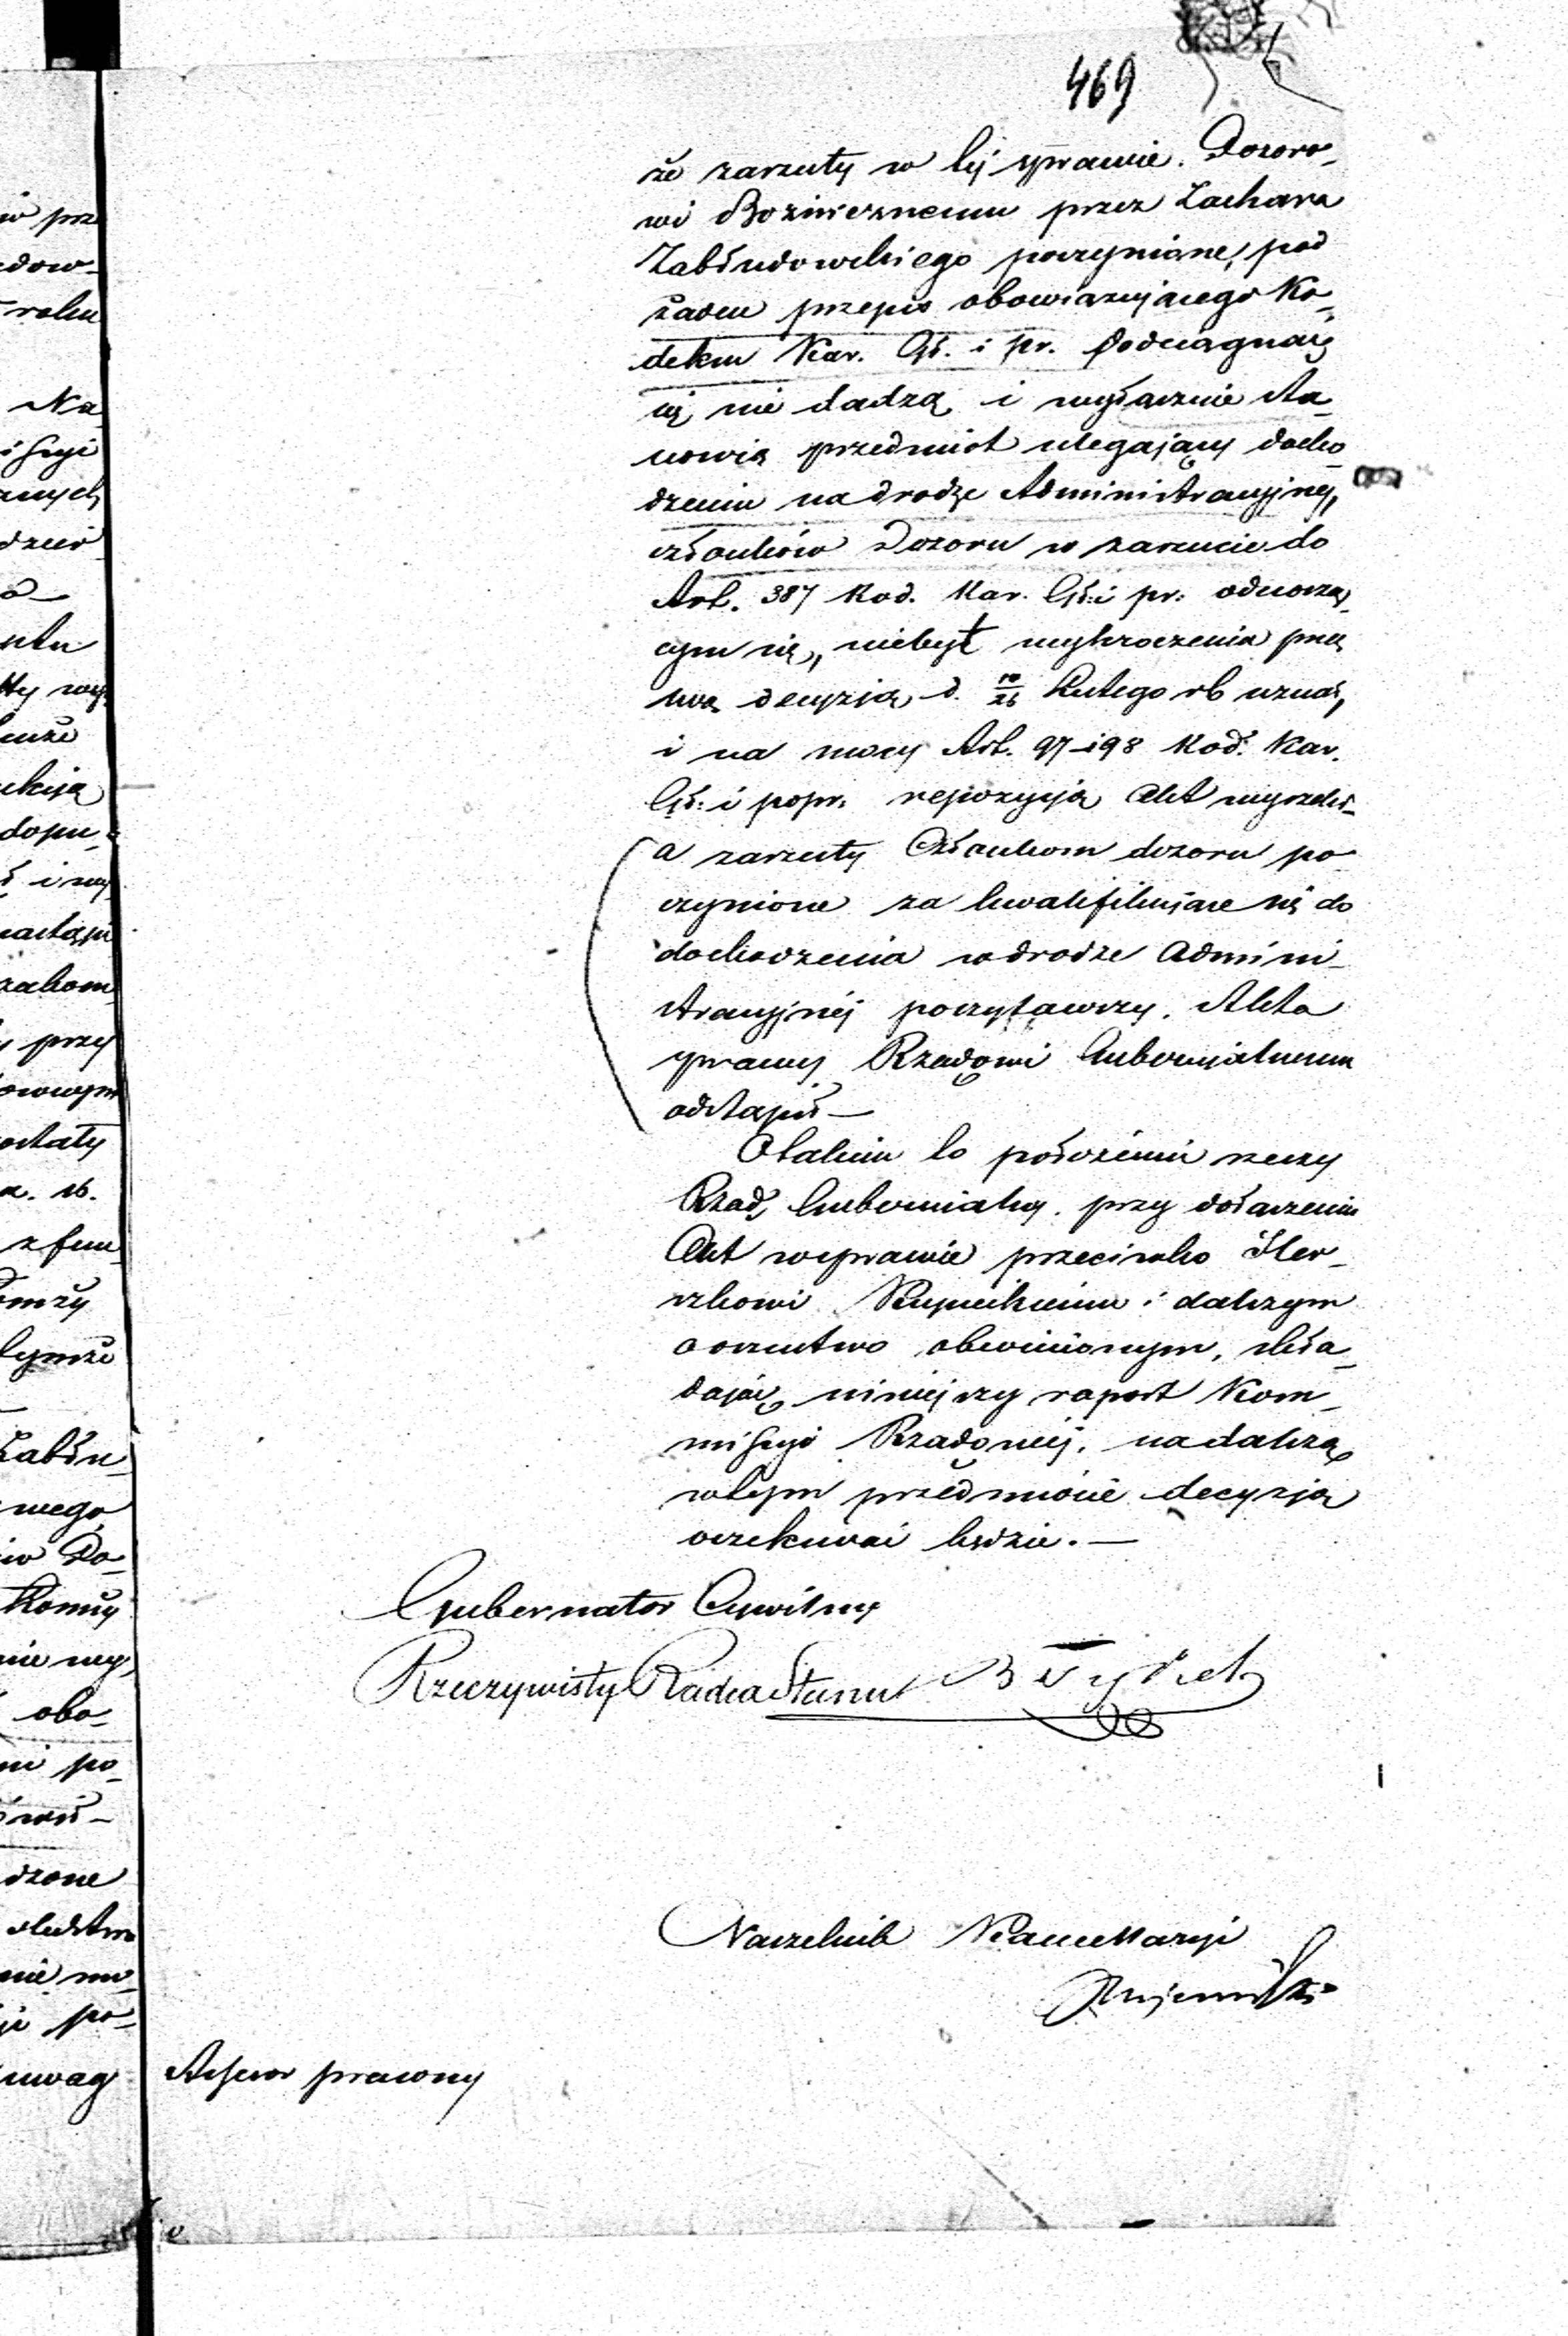 469
że zarzuty w téj sprawie Dozoro-
wi Bożnicznemu przez Zachara
Zabłudowskiego poczynione, pod
żaden przepis obowiązującego Ko-
deksu Kar. Gł. i pr. podciągnąć
się nie dadzą i wyłącznie sta-
nowią przedmiot ulegający docho-
dzeniu na drodze Administracyjnéj,
członków Dozoru w zarzucie do
Art. 387 Kod. Kar. Gł: i pr: odnoszą-
cym się, niebyt wykroczenia pra
wną decyzją d. Lutego rb uznał,
i na mocy Art. 97 i 98 Kod. Kar.
Gł: i popr. repozycją Akt wyrzekł-
a zarzuty Członkom dozoru po
czynione za kwalifikujące się do
dochodzenia w drodze Admini-
stracyjnéj poczytawszy, Akta
sprawy Rządowi Gubernialnemu
odstąpił —
O takim to położeniu rzeczy
Rząd Gubernialny, przy dołączeniu
Akt w sprawie przeciwko Her-
szkowi i dalszym
o oszustwo obwinionym, skła-
dając niniejszy raport Kom-
missyi Rządowéj, na dalszą
w tym przedmiocie decyzją
oczekiwać będzie. —
Gubernator Cywilny
Rzeczywisty Radca Stanu
Naczelnik Kancellaryi
Assesor prawny
ów prz
dow-
roku
Na
issyi
znych
kcją
dopu-
przy
ostały
zfun
Zabłu
wego
ów Do-
Łomży
obo-
po-
dzone
po-
uwag